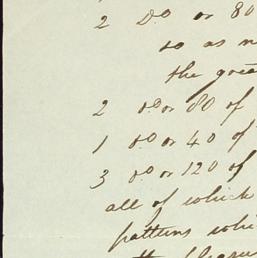 2 Do or 80
so as
the grea
2 do or 80 of
1 do or 40 of
3 do or 120 of
all of which
patterns whi